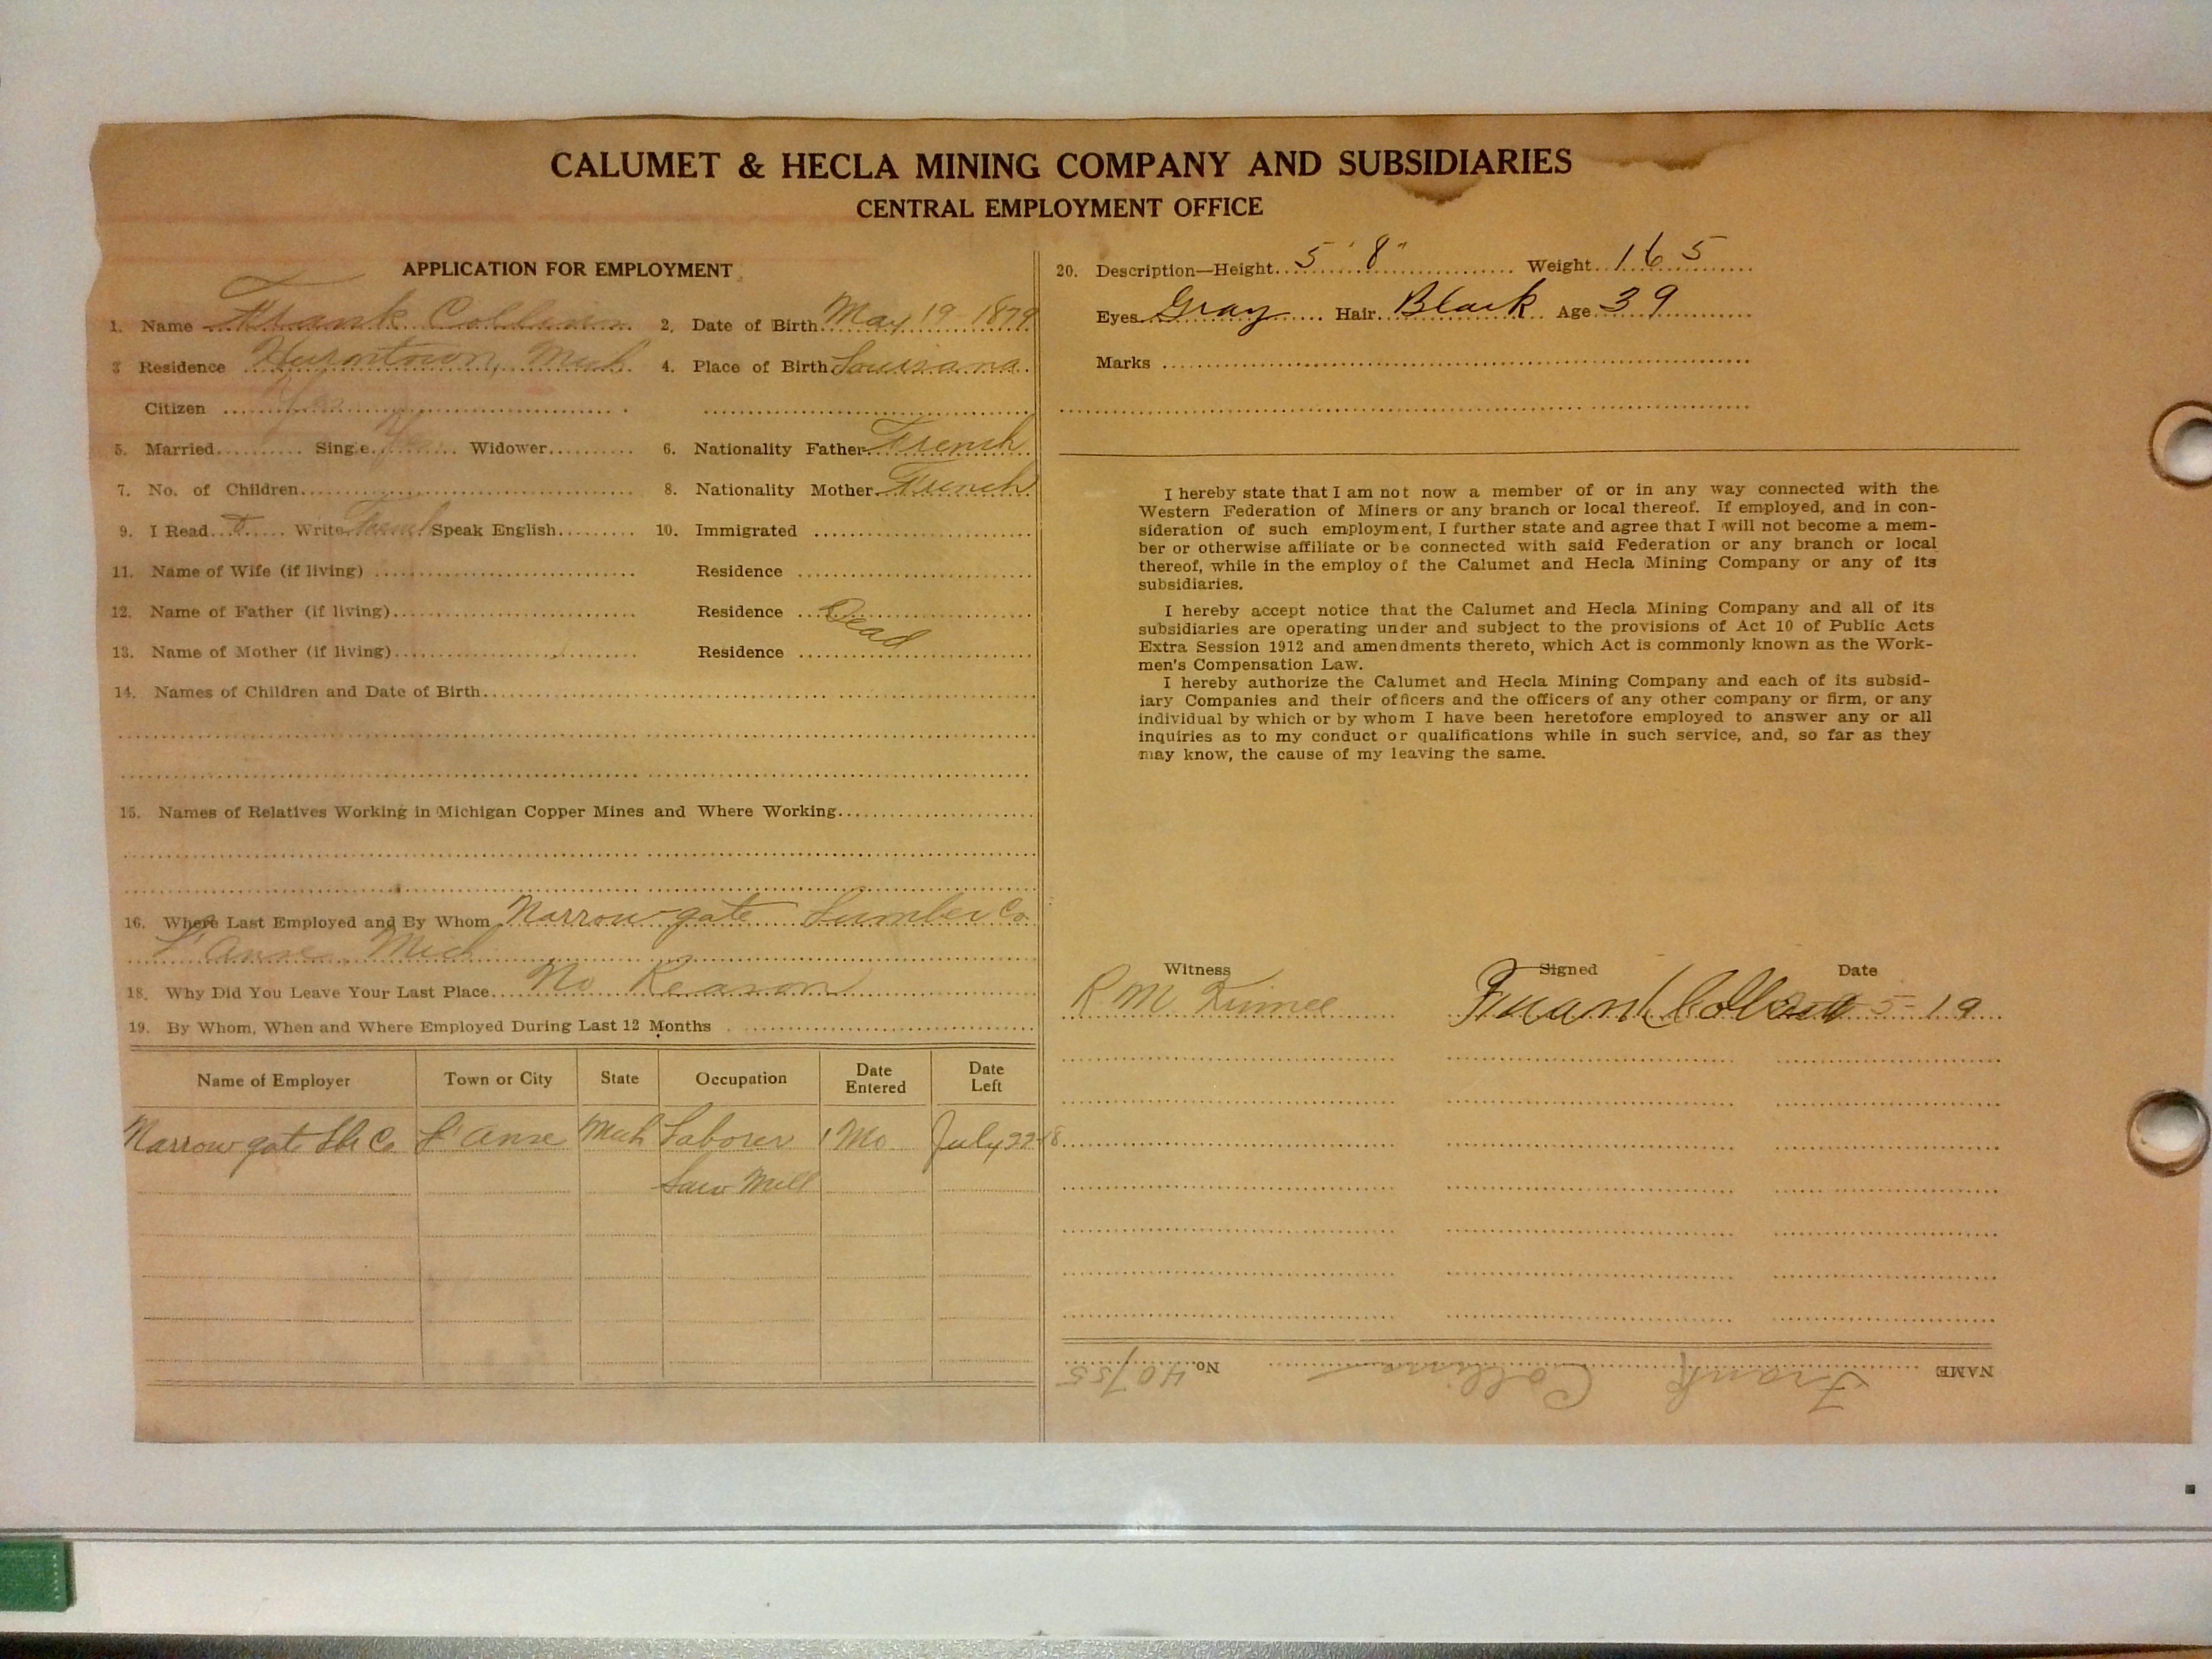 CALUMET & HECLA MINING COMPANY AND SUBSIDIARIES
CENTRAL EMPLOYMENT OFFICE
APPLICATION FOR EMPLOYMENT
1. Name Frank Collins 2. Date of Birth May 19 1879
3 Residence Hurontown, Mich 4. Place of Birth Louisana
Citizen Yes
5. Married Single Yes Widower 6. Nationality Father French
7. No. of Children 8. Nationality Mother French
9. I Read Write French Speak English 10. Immigrated
11. Name of Wife (if living) Residence
12. Name of Father (if living) Residence Dead
13. Name of Mother (if living) Residence
14. Names of Children and Date of Birth
15. Names of Relatives Working in Michigan Copper Mines and Where Working
16. Where Last Employed and By Whom Narrow gate Lumber Co
L'Anse Mich
18. Why Did You Leave Your Last Place No Reason
19. By Whom, When and Where Employed During Last 12 Months
Name of Employer Town or City State Occupation Date Entered Date Left
Narrow gate Lbr Co L'Anse Mich Laborer 1 Mo July 22-18
Saw Mill
20. Description—Height 5' 8" Weight 165
Eyes Gray Hair Black Age 39
Marks
I hereby state that I am not now a member of or in any way connected with the
Western Federation of Miners or any branch or local thereof. If employed, and in con-
sideration of such employment, I further state and agree that I will not become a mem-
ber or otherwise affiliate or be connected with said Federation or any branch or local
thereof, while in the employ of the Calumet and Hecla Mining Company or any of its
subsidiaries.
I hereby accept notice that the Calumet and Hecla Mining Company and all of its
subsidiaries are operating under and subject to the provisions of Act 10 of Public Acts
Extra Session 1912 and amendments thereto, which Act is commonly known as the Work-
men's Compensation Law.
I hereby authorize the Calumet and Hecla Mining Company and each of its subsid-
iary Companies and their officers and the officers of any other company or firm, or any
individual by which or by whom I have been heretofore employed to answer any or all
inquiries as to my conduct or qualifications while in such service, and, so far as they
may know, the cause of my leaving the same.
Witness Signed Date
R. M. Frank Collins 5-19
NAME Frank Collins No. 40755